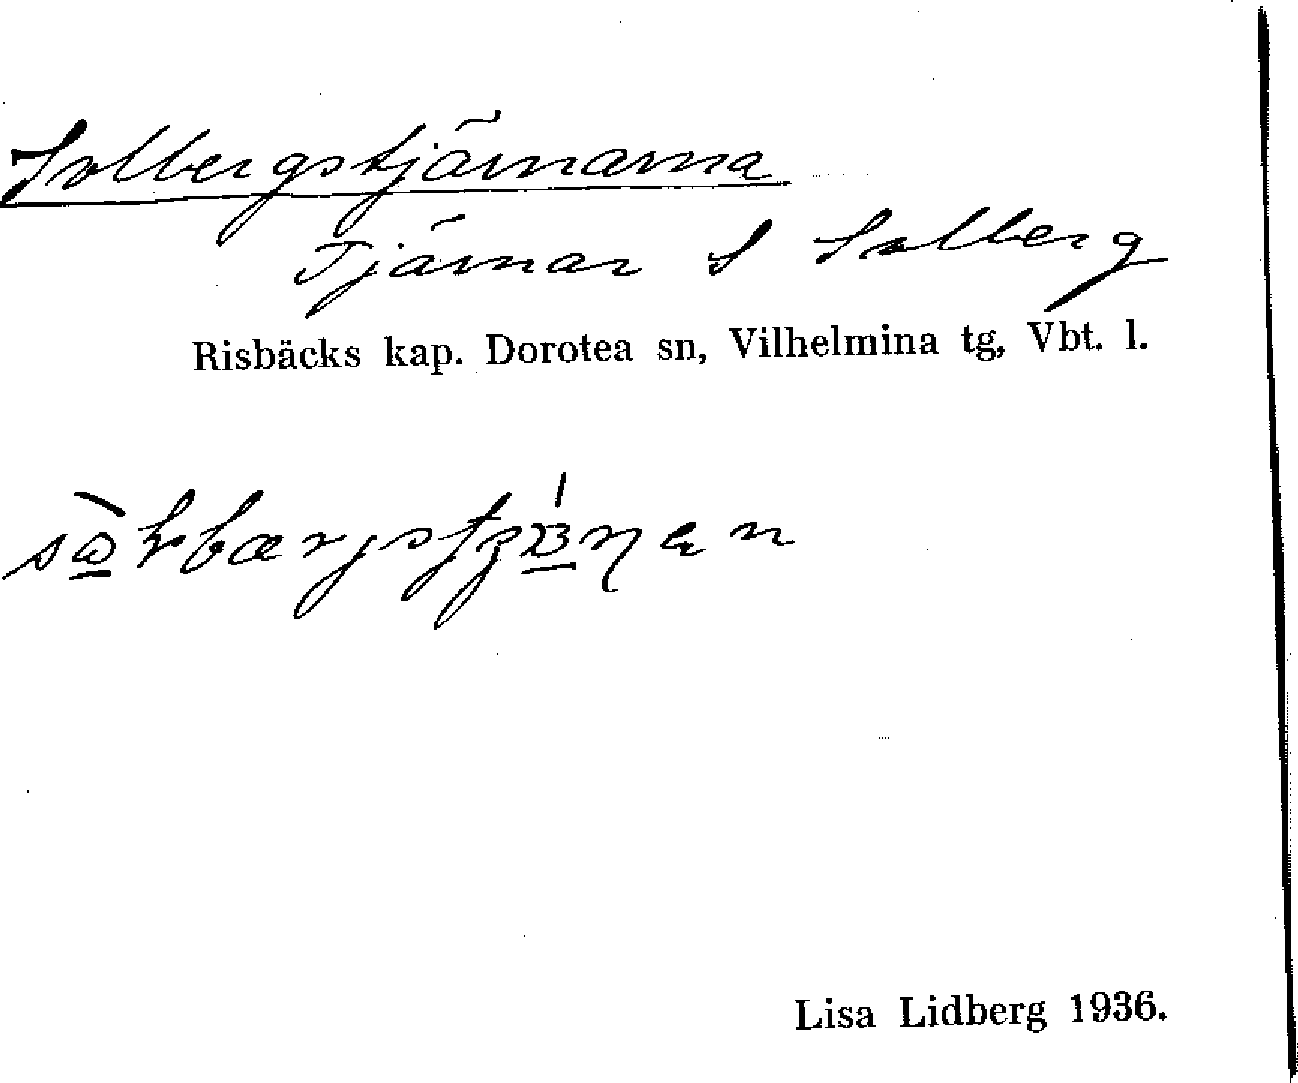 Solbergstjärnarna
Tjärnar S Solberg
Risbäcks kap. Dorotea sn, Vilhelmina tg, Vbt. l.
Lisa Lidberg 1936.